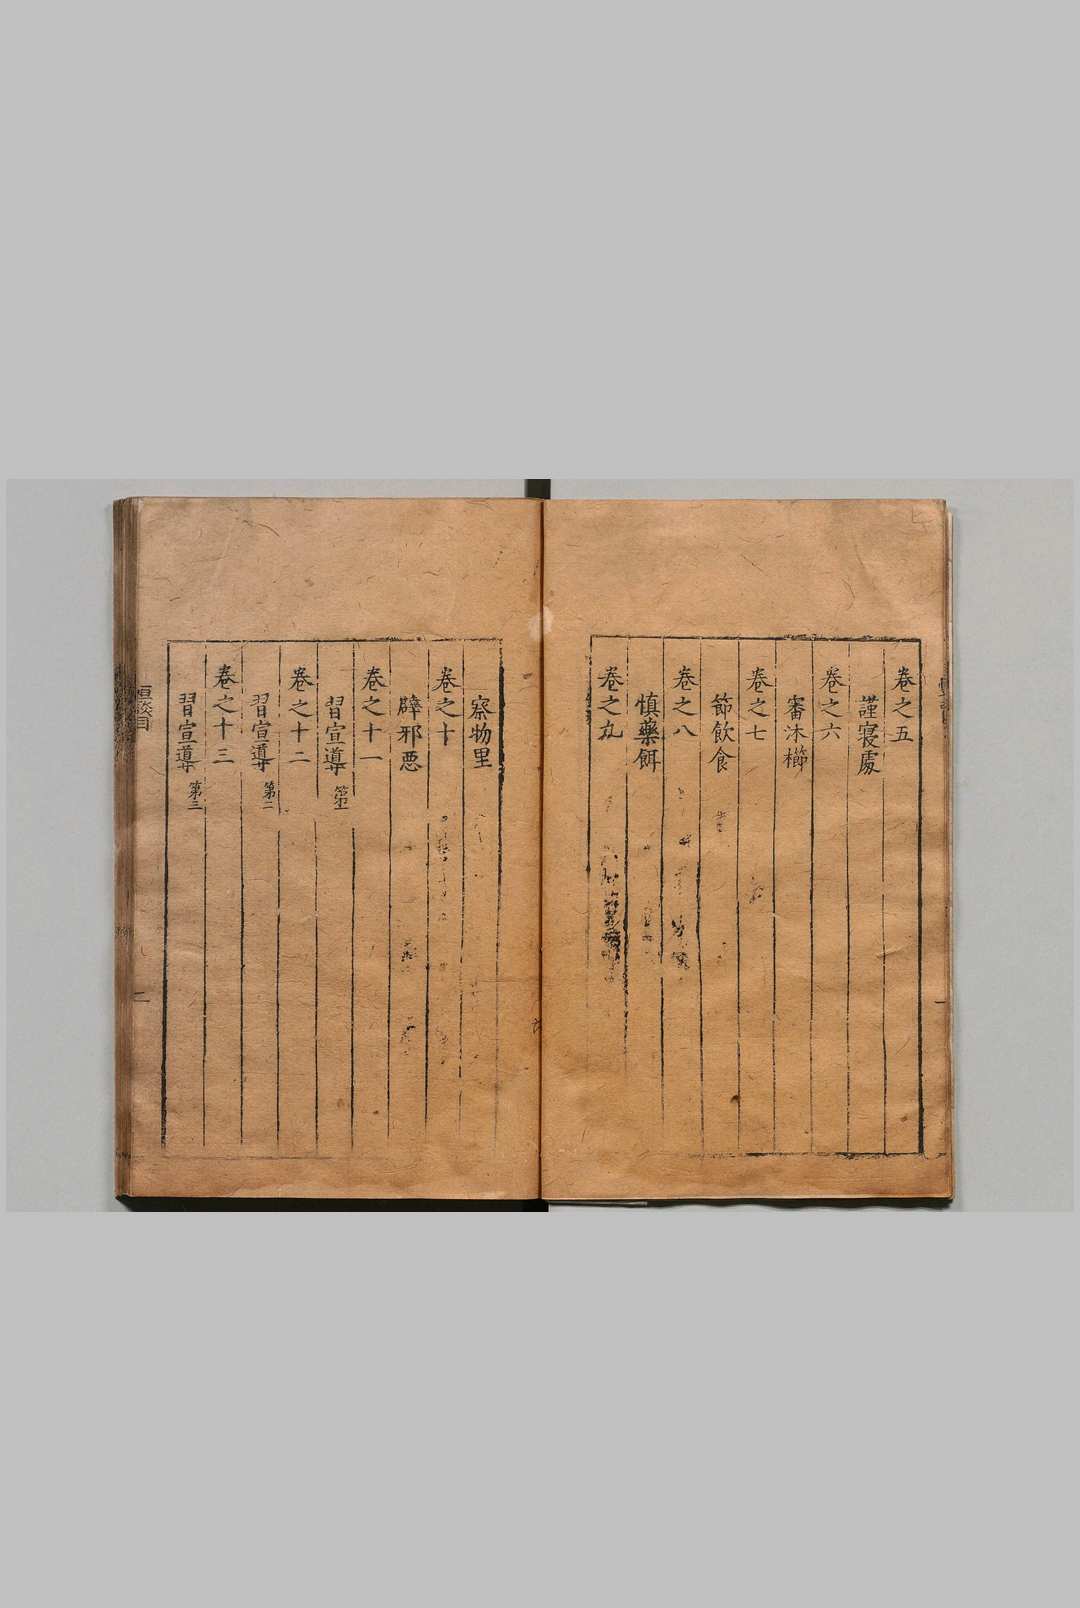 卷之五
謹寢處
卷之六
審沐櫛
卷之七
節飲食
卷之八
慎藥餌
卷之九
察物里
卷之十
辟邪惡
卷之十一
習宣導 第一
卷之十二
習宣導 第二
卷之十三
習宣導 第三
亘談目
二